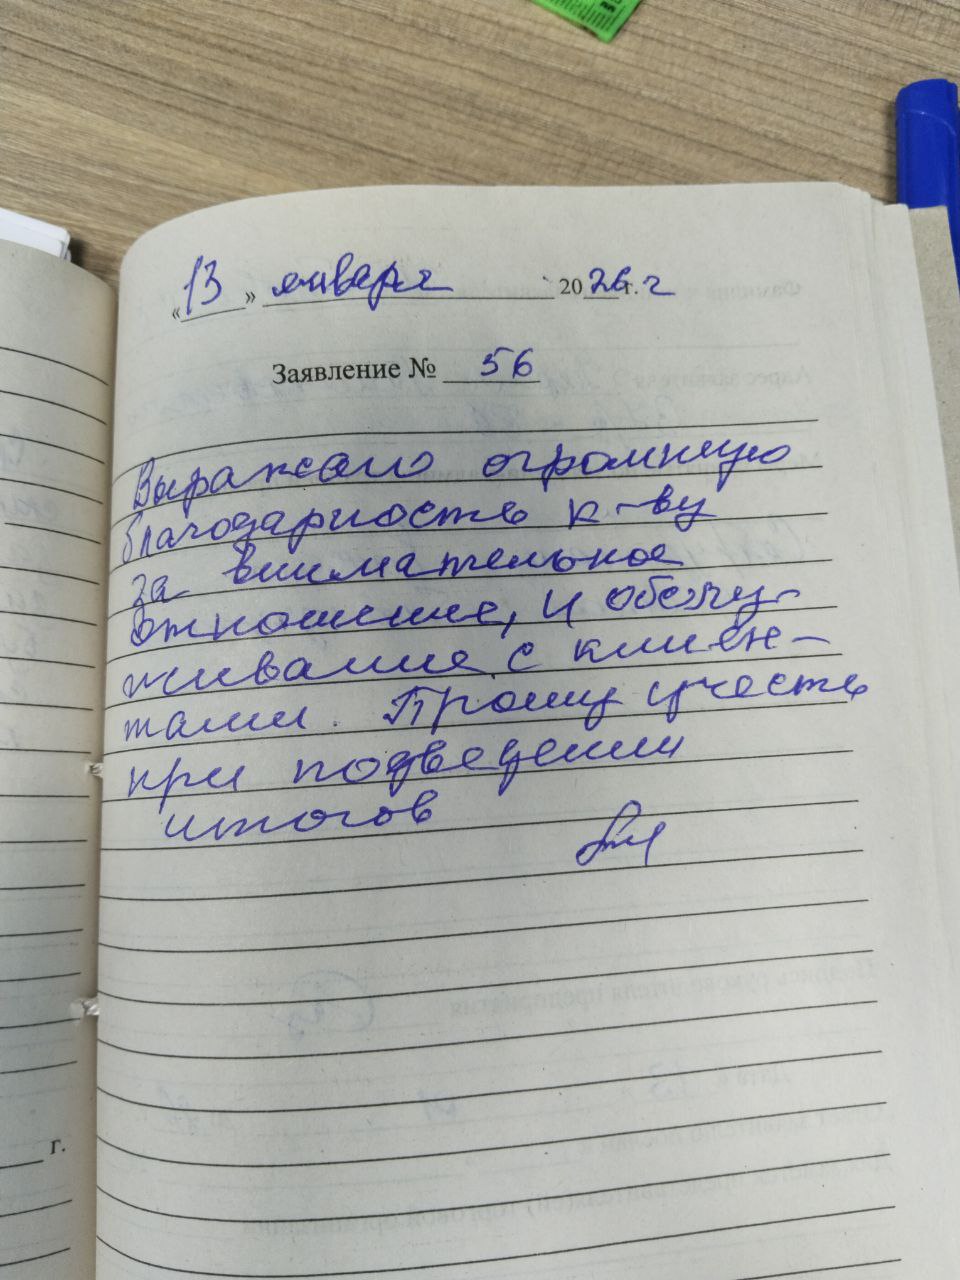 «13» января 2026г. г
Заявление № 56
Выражаю огромную
благодарность к-ву
за внимательное
отношение, и обслу-
живание с клиен-
тами. Прошу учесть
при подведении
итогов
г.